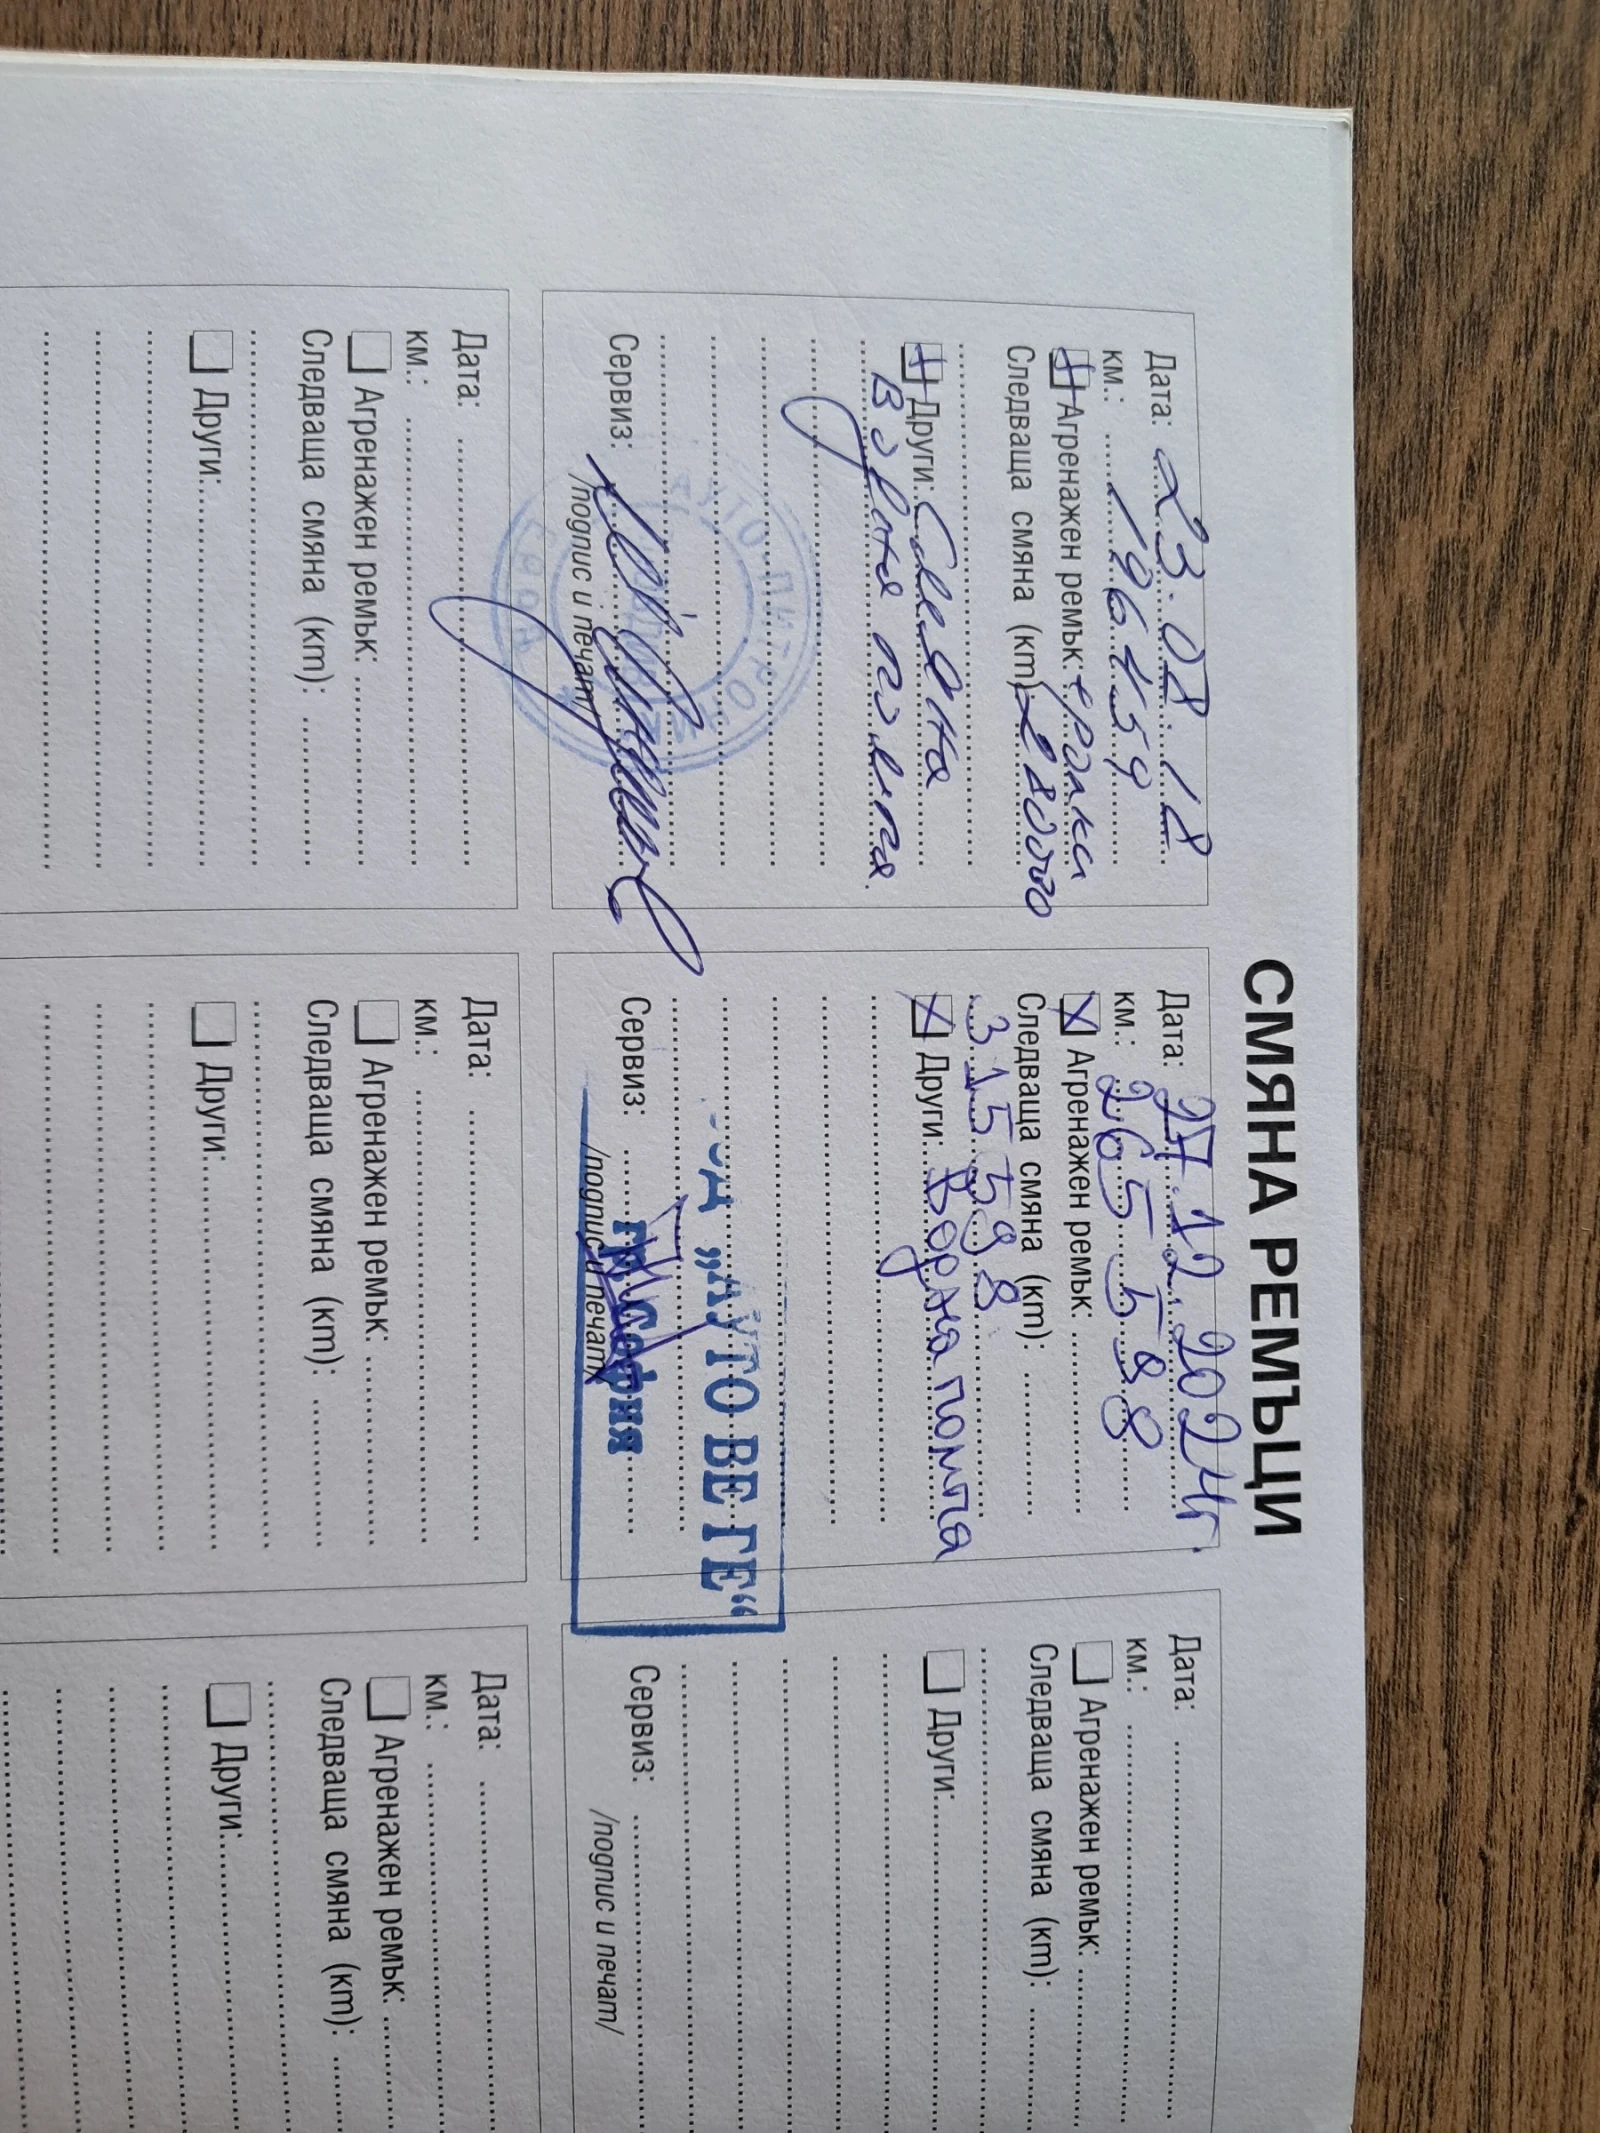 СМЯНА РЕМЪЦИ
Дата: 23.08.18
км.: 196459
Агренажен ремък: + ролки
Следваща смяна (km) 280000
Други: Сменена
Водна помпа.
Сервиз:
/подпис и печат/
Дата: 27.12.2024г.
км.: 265598
Агренажен ремък:
Следваща смяна (km):
315598
Други: Водна помпа
„АУТО ВЕ ГЕ“
Сервиз: гр. София
/подпис и печат/
Дата:
км.:
Агренажен ремък:
Следваща смяна (km):
Други:
Сервиз:
/подпис и печат/
Дата:
км.:
Агренажен ремък:
Следваща смяна (km):
Други:
Дата:
км.:
Агренажен ремък:
Следваща смяна (km):
Други:
Дата:
км.:
Агренажен ремък:
Следваща смяна (km):
Други: